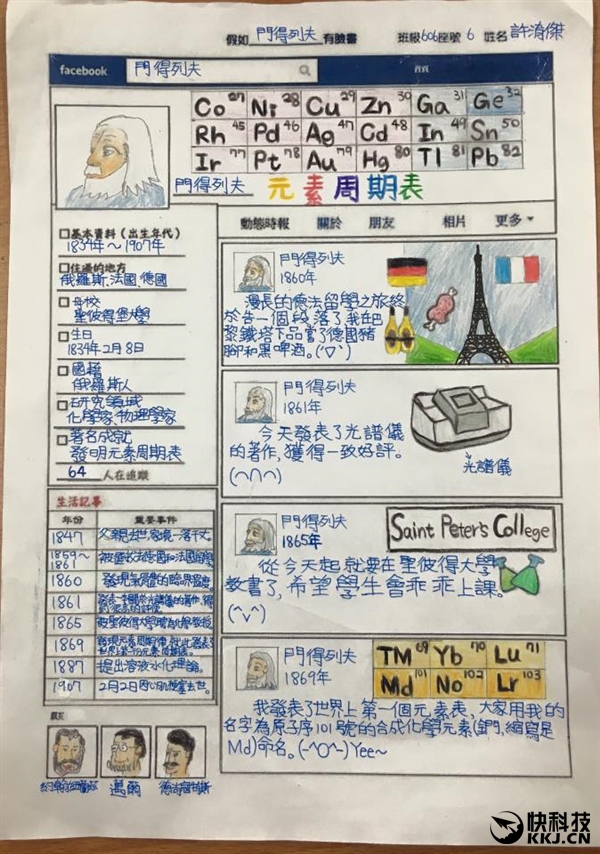 假如 門得列夫 有臉書 班級606座號 6 姓名
facebook 門得列夫 首頁
Co 27 Ni 28 Cu 29 Zn 30 Ga 31 Ge 32
Rh 45 Pd 46 Ag 47 Cd 48 In 49 Sn 50
Ir 77 Pt 78 Au 79 Hg 80 Tl 81 Pb 82
門得列夫 元素周期表
動態時報 關於 朋友 相片 更多
基本資料(出生年代)
1834年~1907年
住過的地方
俄羅斯、法國、德國
母校
聖彼得堡大學
生日
1834年2月8日
國籍
俄羅斯人
研究領域
化學家、物理學家
著名成就
發明元素周期表
64 人在追蹤
生活記事
年份 重要事件
1847 父親去世家境一落千丈。
1859~
1861
1860
1861
1865
1869
1887 提出溶液水化理論。
1907 2月2日因心肌梗塞去世。
邁爾
門得列夫
1860年
漫長的德法留學之旅終
於告一個段落了,我在巴
黎鐵塔下品嘗了德國豬
腳和黑啤酒。(ˊ▽ˋ)
門得列夫
1861年
今天發表了光譜儀
的著作,獲得一致好評。
(⌒∩⌒)
光譜儀
門得列夫
1865年
Saint Peter's College
從今天起就要在聖彼得大學
教書了,希望學生會乖乖上課。
(ˇvˇ)
門得列夫
1869年
TM 69 Yb 70 Lu 71
Md 101 No 102 Lr 103
我發表了世界上第一個元素表,大家用我的
名字為原子序101號的合成化學元素(鍆,縮寫是
Md)命名。(-^O^-)Yee~
快科技
KKJ.CN